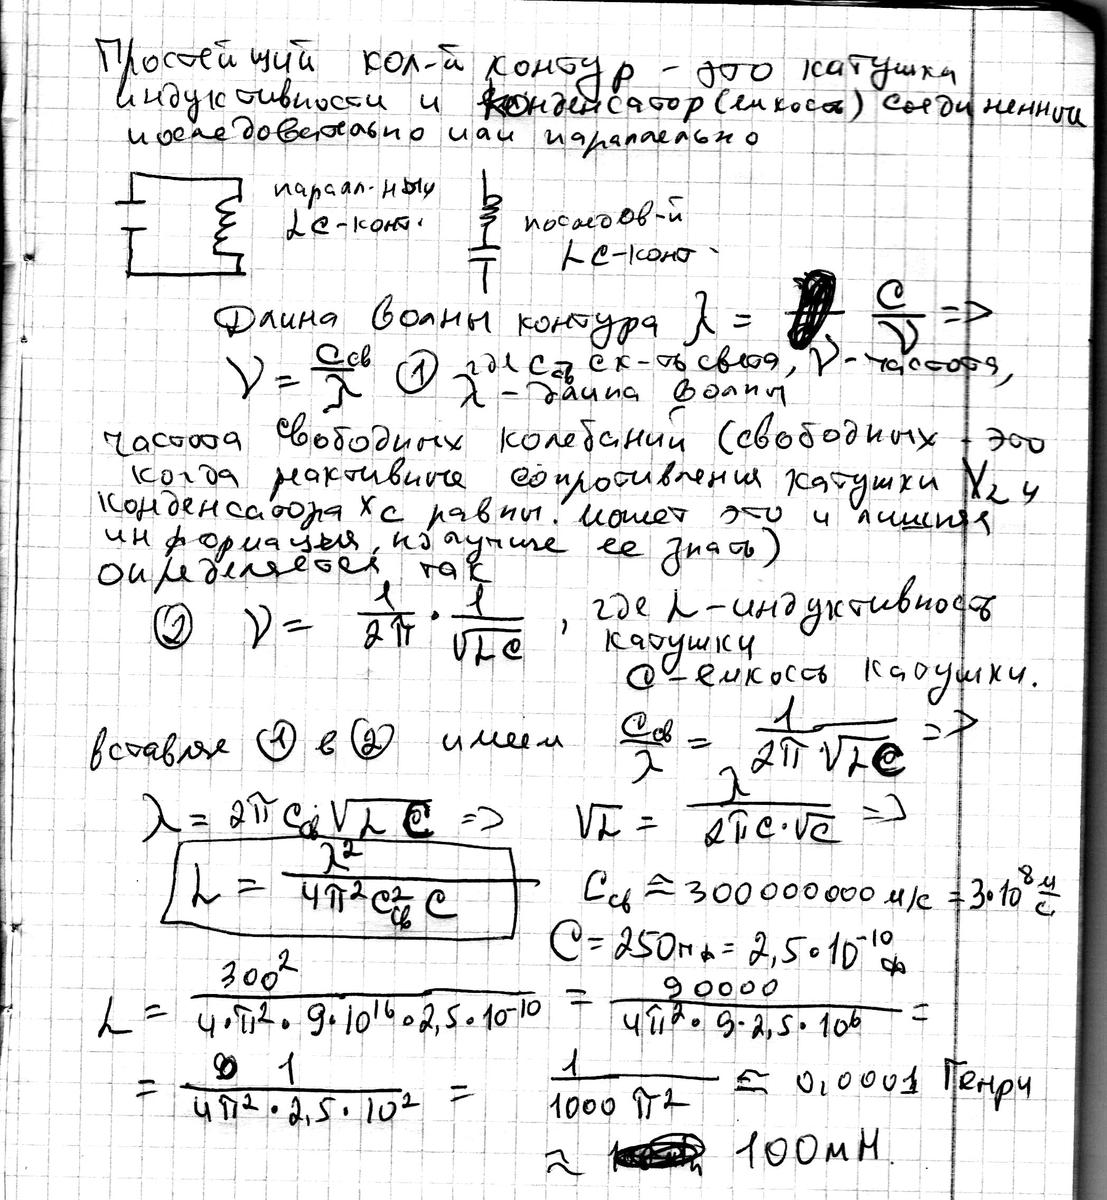 Простейший кол-й контур – это катушка
индуктивности и конденсатор (емкость) соединенной
последовательно или параллельно
параал-ный
LC-конт.
последов-й
LC-конт.
Длина волны контура λ = C/ν =>
ν = Cсв/λ ① где Cсв ск-ть света, ν - частота,
λ - длина волны
частота свободных колебаний (свободных - это
когда реактивные сопротивления катушки XL и
конденсатора Xc равны. может это и лишняя
информация, но лучше ее знать)
определяется так
② ν = 1/2π · 1/√LC, где L - индуктивность
катушки
C - емкость катушки.
вставляя ① в ② имеем Cсв/λ = 1/2π√LC =>
λ = 2π Cсв √LC => √L = λ/2πC·√C =>
L = λ²/4π²C²св C Cсв ≈ 300000000 м/с = 3·10⁸ м/с
C = 250пф = 2,5·10⁻¹⁰ ф
L = 300²/4·π²·9·10¹⁶·2,5·10⁻¹⁰ = 90000/4π²·9·2,5·10⁶ =
= 1/4π²·2,5·10² = 1/1000π² ≈ 0,0001 Генри
≈ 100мН.